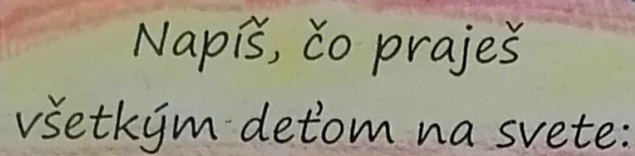 Napíš, čo praješ
všetkým deťom na svete: